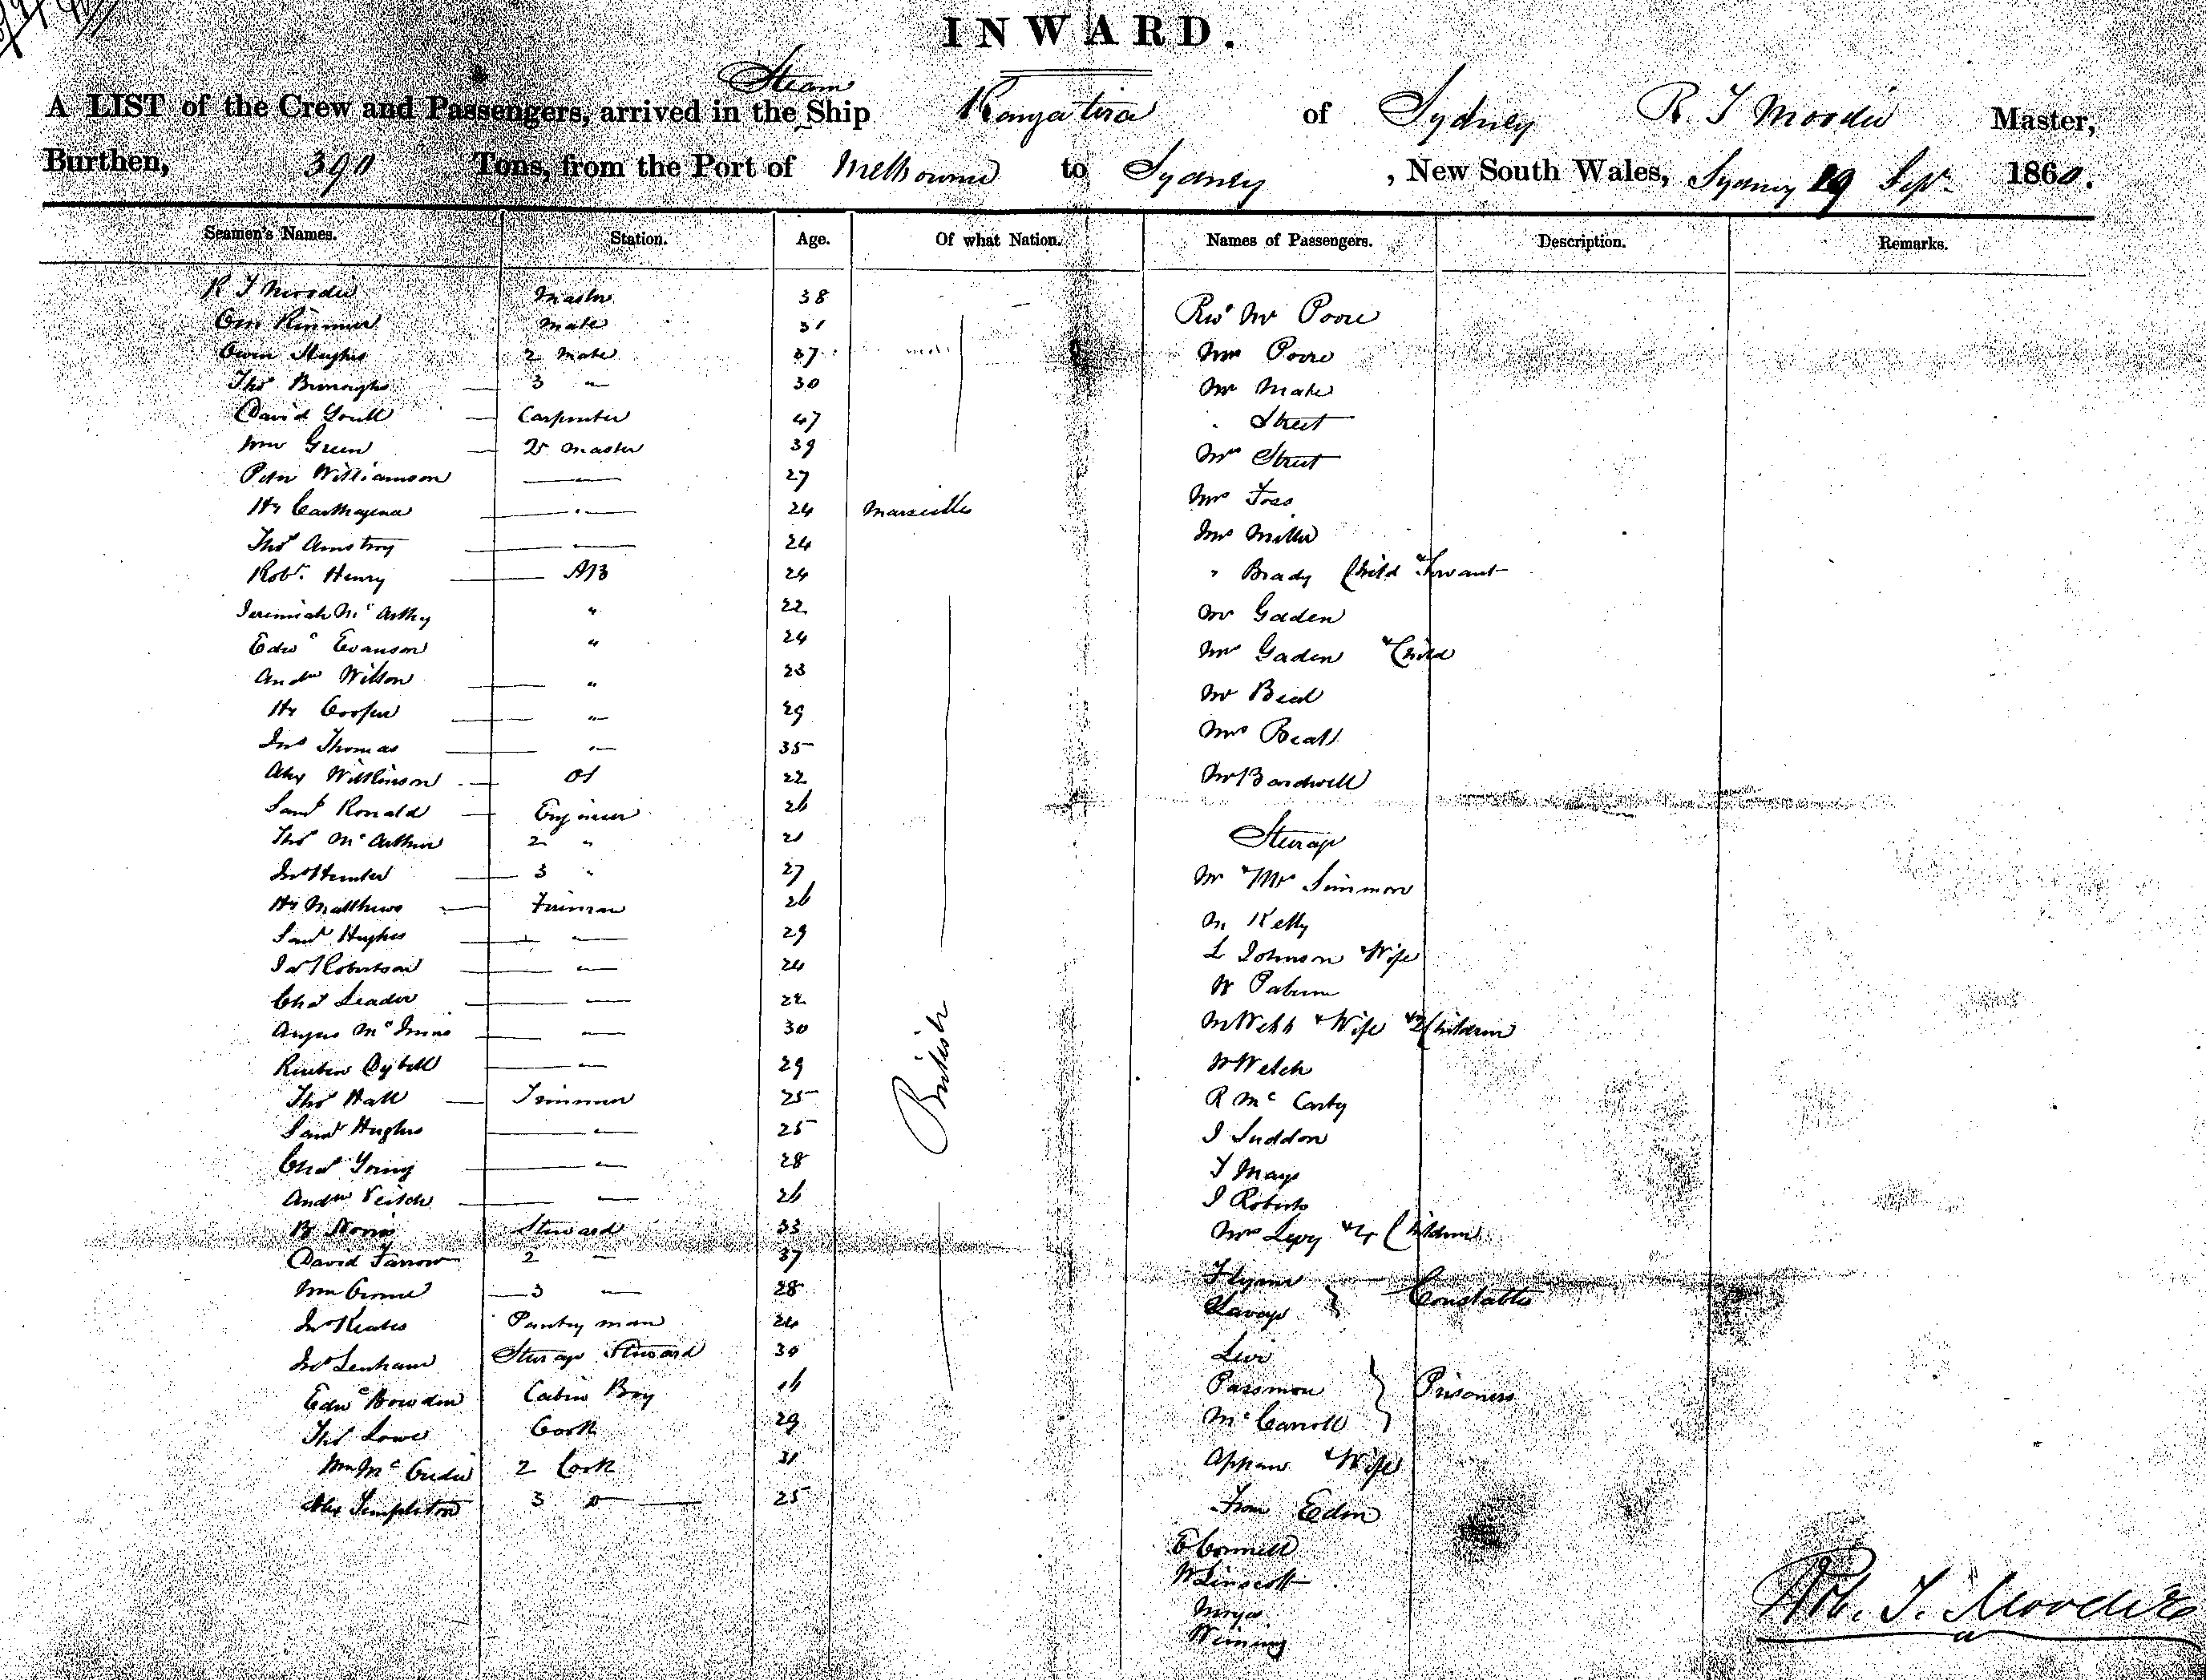 INWARD.
Steam
A LIST of the Crew and Passengers, arrived in the Ship Rangatira of Sydney R. T Moodie Master,
Burthen, 390 Tons, from the Port of Melbourne to Sydney , New South Wales, Sydney 19 Sept 1860.
Seamen's Names. Station. Age. Of what Nation. Names of Passengers. Description. Remarks.
R T Moodie Master 38
Mate 31
Owen Hughes 2 Mate 37
Thos Burroughs 3 " 30
David Youll Carpenter 47
Wm Green Qr Master 39
Peter Williamson 27
Hy Carthagena 24 Marseilles
Thos Amstroy 24
Robt. Henry AB 24
Jeremiah McArthy " 22
Edwd Evanson " 24
Andw Wilson " 23
Hy Cooper " 29
Jno Thomas " 35
Alex Wilkinson OS 22
Saml Ronald Engineer 26
Thos McArthur 2 " 21
Jno Hunter 3 " 27
Hy Matthews Fireman 26
Saml Hughes " 29
Jas Robertson " 24
Chas Leader " 22
Angus McInnis " 30
Reuben Dybell " 29
Thos Hall Trimmer 25
Saml Hughes " 25
Chas Young " 28
Andw Veitch " 26
Norris Steward 33
David Farrow 2 " 37
Wm 3 " 28
Jno Keates Pantry man 24
Jno Lenham Steerage Steward 30
Edwd Bowden Cabin Boy 16
Thos Lowe Cook 29
Wm Mc 2 Cook 31
Alex Templeton 3 D 25
British
Revd Mr Poore
Mrs Poore
Mr Mate
" Street
Mrs Street
Mrs Foss
Mrs Miller
" Brady Child & Servant
Mr Gaden
Mrs Gaden & Child
Mr Beal
Mrs Beall
Mr Bardwell
Steerage
Mr & Mrs Simmon
M Kelly
L Johnson & Wife
W
M Webb & Wife & 2 Children
W Welch
R McCarty
J Suddon
T Mays
J Roberts
Mrs Levy & 4 Children
Flynn
Savage } Constables
Levi
Passmore } Prisoners
McCarroll
Appaw & Wife
From Eden
E Connell
W Linscott
Rob. T. Moodie